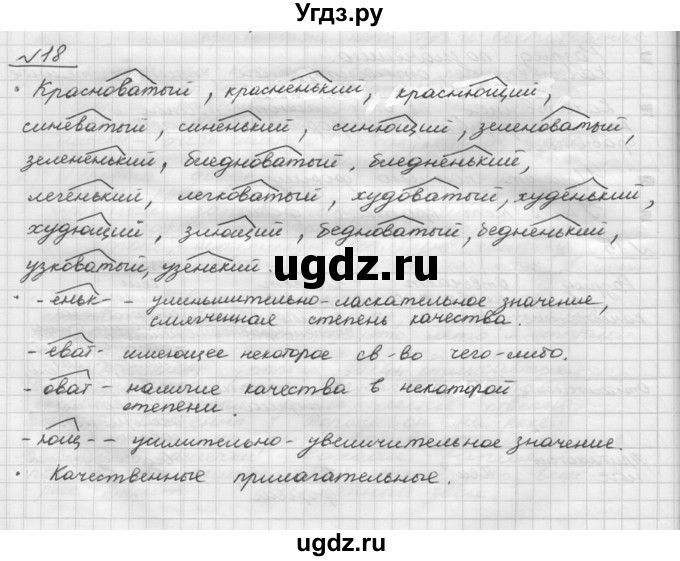 Угдз.ру
№18
· Красноватый, красненький, краснющий,
синеватый, синенький, синющий, зеленоватый,
зелененький, бледноватый, бледненький,
легенький, легковатый, худоватый, худенький,
худющий, злющий, бедноватый, бедненький,
узковатый, узенький.
· -еньк- - уменьшительно-ласкательное значение,
смягченная степень качества.
-еват- имеющее некоторое св-во чего-либо.
-оват- наличие качества в некоторой
степени.
-ющ- - усилительно-увеличительное значение.
· Качественные прилагательные.
ugdz.ru
ugdz.ru